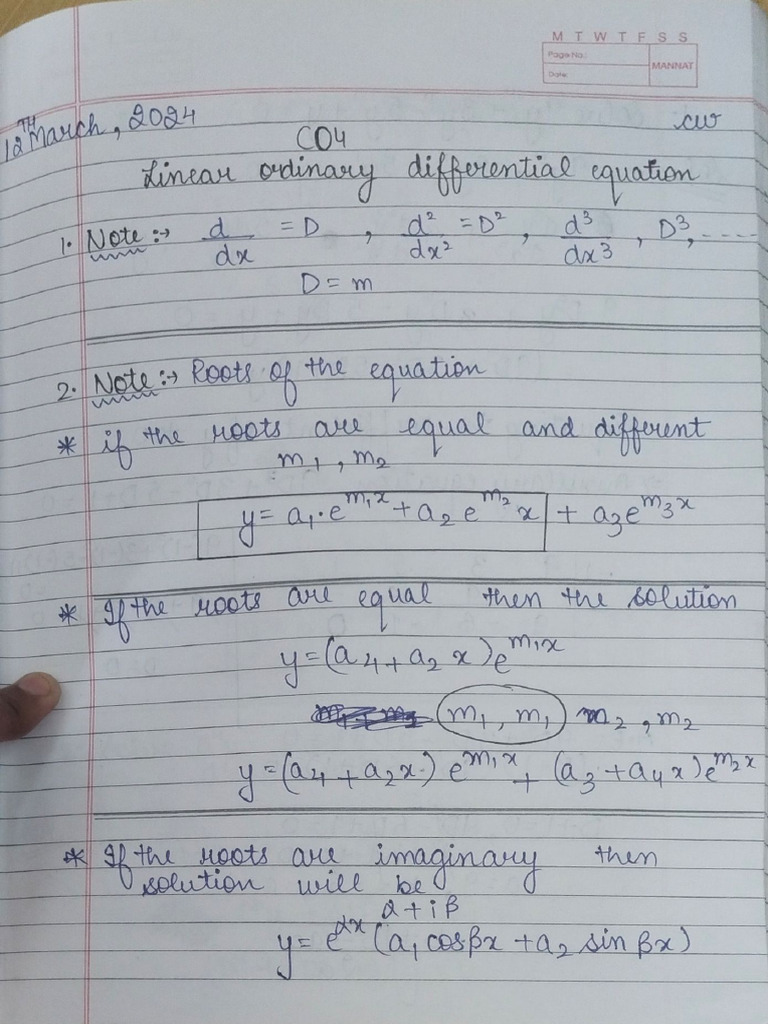 M T W T F S S
Page No.:
MANNAT
Date:
12TH March, 2024
CW
CO4
Linear ordinary differential equation
1. Note :→ d/dx = D , d²/dx² = D² , d³/dx³ , D³, -----
D = m
2. Note :→ Roots of the equation
* if the roots are equal and different
m₁ , m₂
y = a₁·e^m₁x + a₂ e^m₂ x + a₃e^m₃x
* If the roots are equal then the solution
y = (a₄ + a₂ x) e^m₁x
(m₁ , m₁) m₂ , m₂
y = (a₄ + a₂x) e^m₁x + (a₃ + a₄x) e^m₂x
* If the roots are imaginary then
solution will be
α + iβ
y = e^αx (a₁ cosβx + a₂ sin βx)